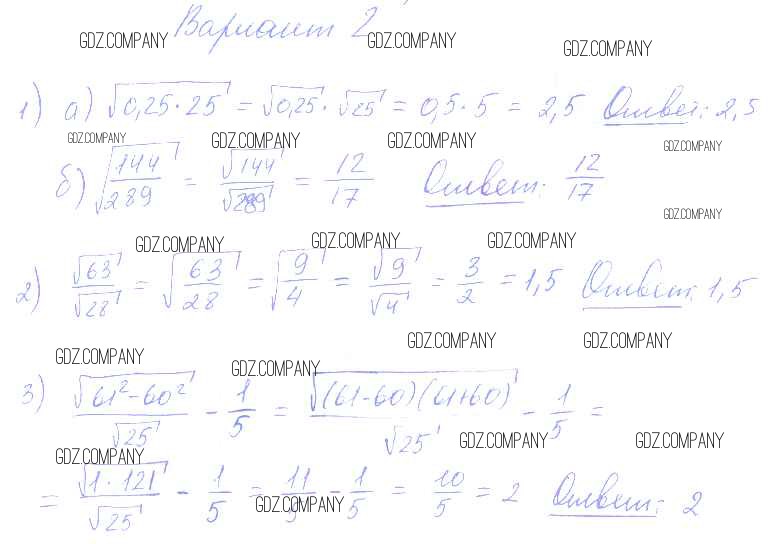 Вариант 2
GDZ.COMPANY GDZ.COMPANY GDZ.COMPANY
1) а) √(0,25·25) = √0,25 · √25 = 0,5·5 = 2,5 Ответ: 2,5
GDZ.COMPANY GDZ.COMPANY GDZ.COMPANY GDZ.COMPANY
б) √(144/289) = √144/√289 = 12/17 Ответ: 12/17
GDZ.COMPANY
GDZ.COMPANY GDZ.COMPANY GDZ.COMPANY
2) √63/√28 = √(63/28) = √(9/4) = √9/√4 = 3/2 = 1,5 Ответ: 1,5
GDZ.COMPANY GDZ.COMPANY GDZ.COMPANY GDZ.COMPANY
3) √(61²-60²)/√25 - 1/5 = √((61-60)(61+60))/√25 - 1/5 =
GDZ.COMPANY GDZ.COMPANY GDZ.COMPANY
= √(1·121)/√25 - 1/5 = 11/5 - 1/5 = 10/5 = 2 Ответ: 2
GDZ.COMPANY